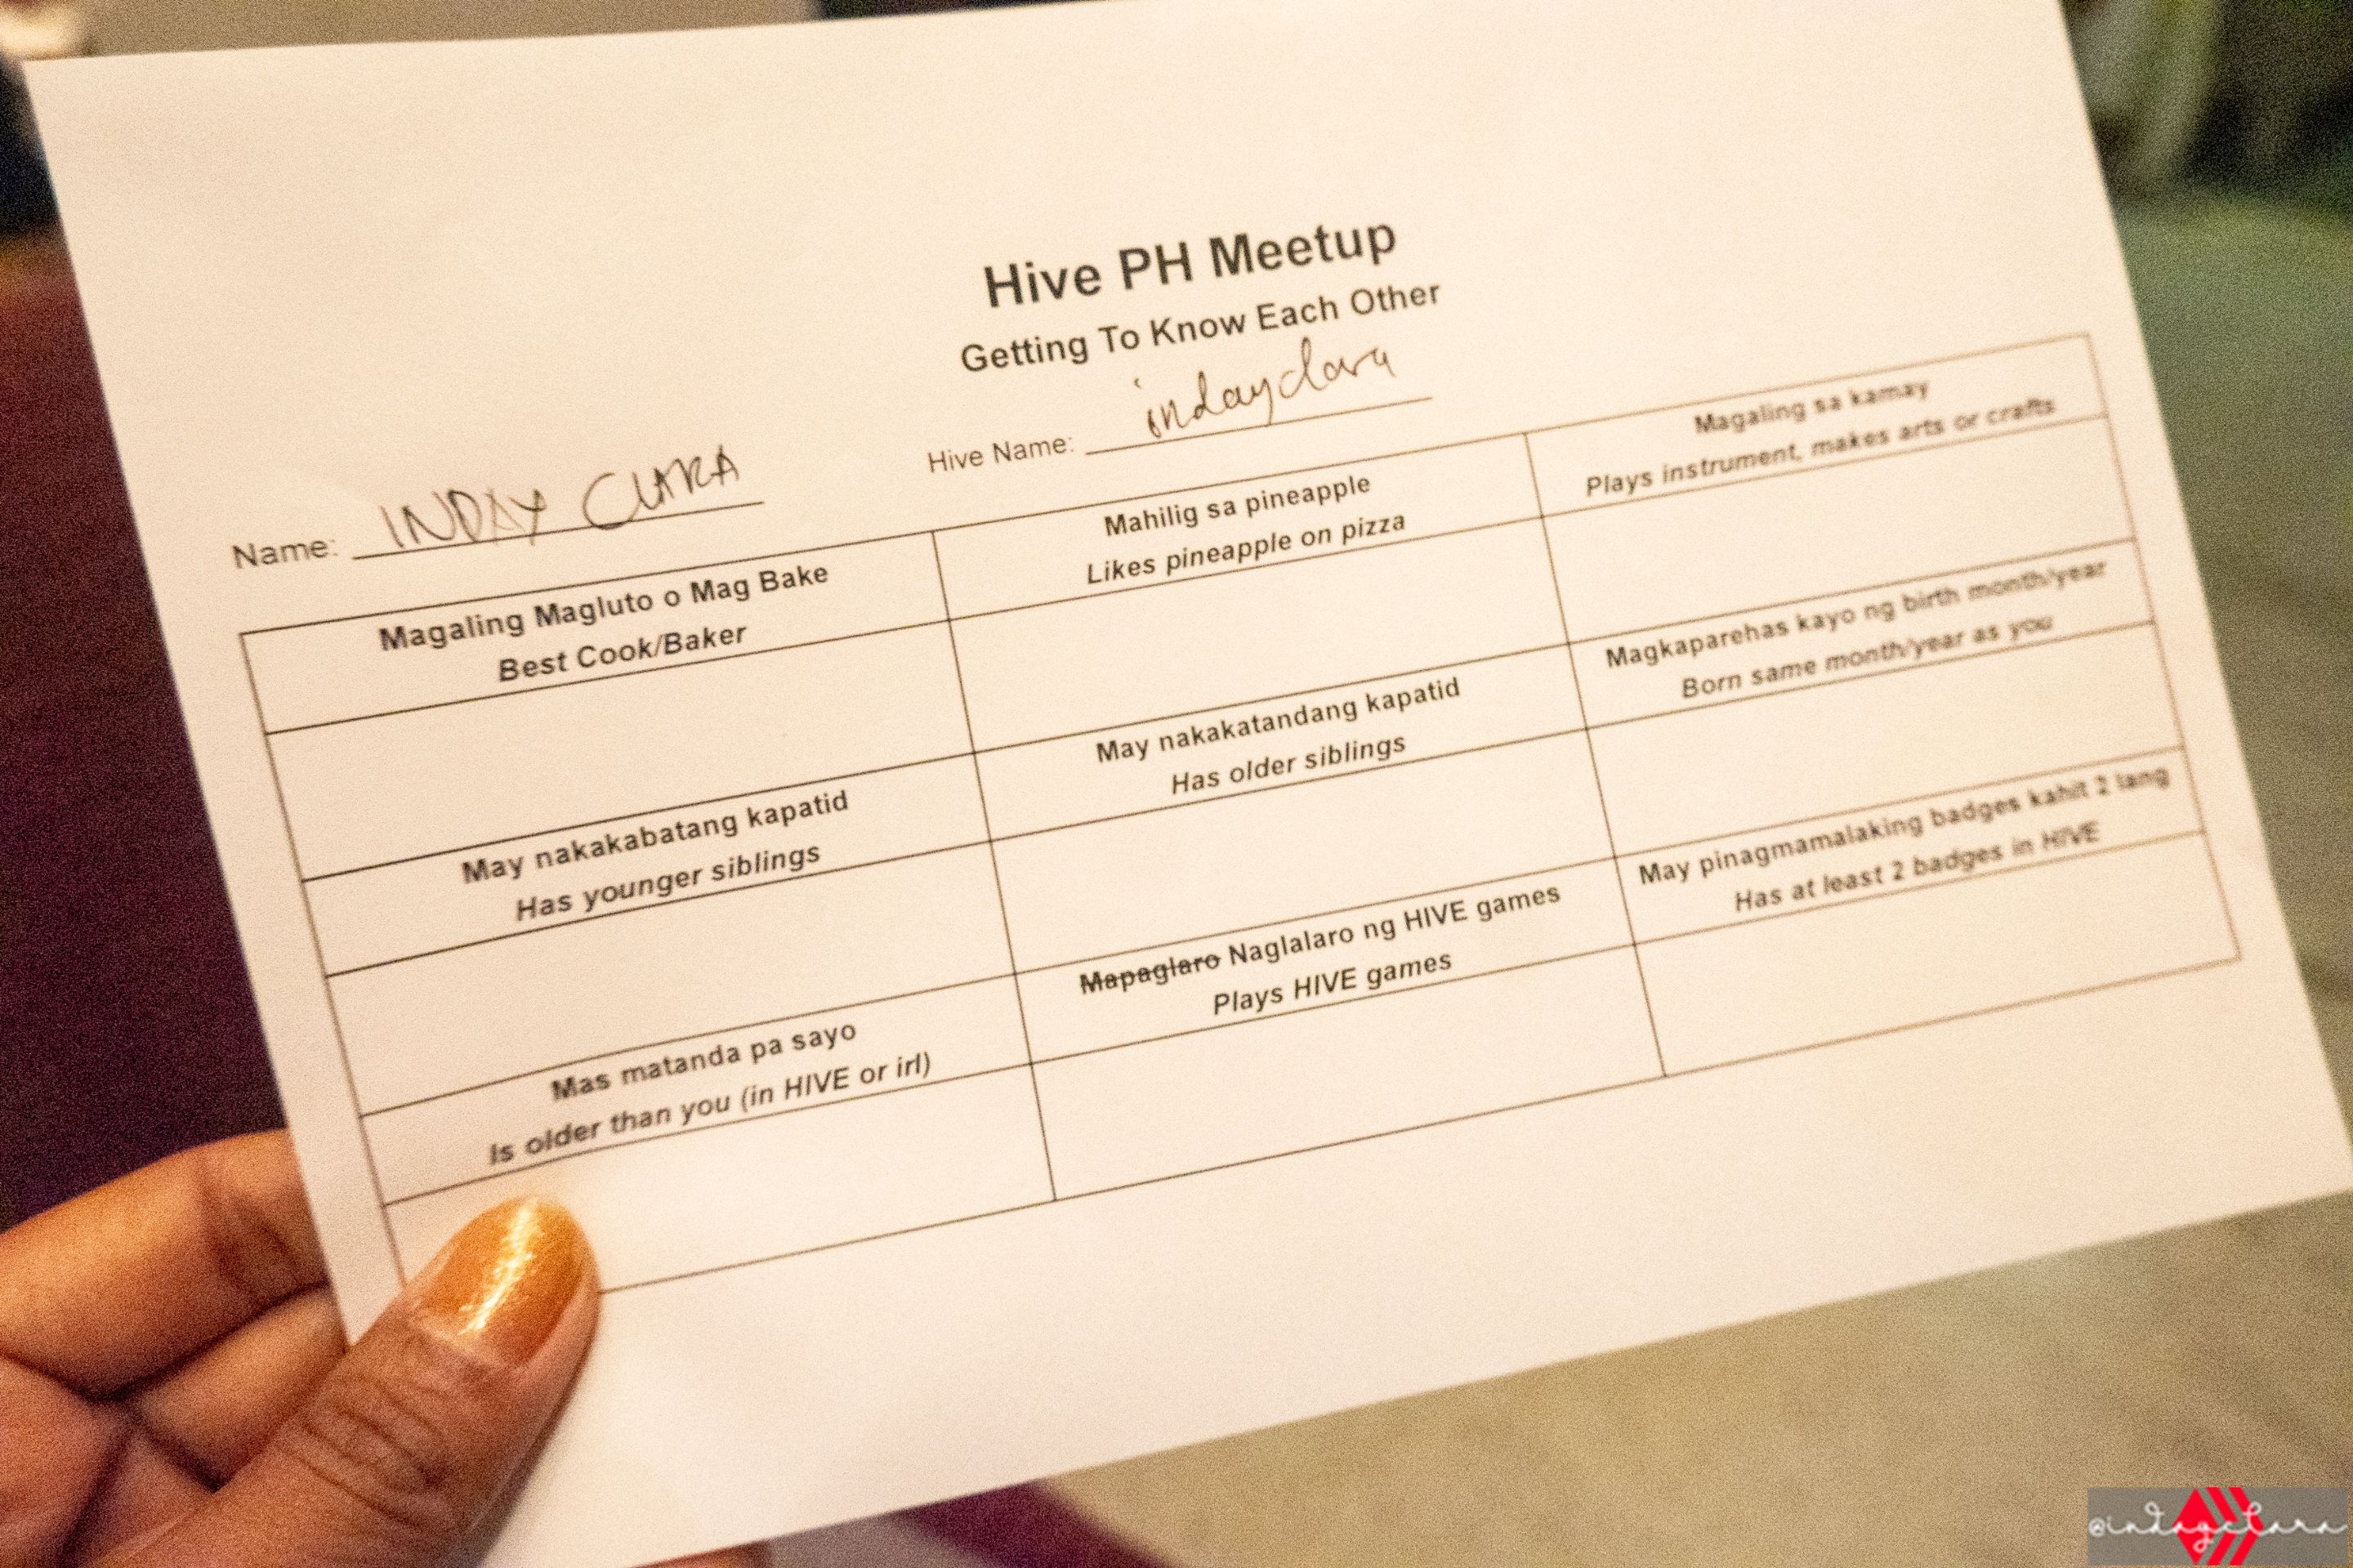 Hive PH Meetup
Getting To Know Each Other
Name: INDAY CLARA
Hive Name: indayclara
Magaling Magluto o Mag Bake
Best Cook/Baker
Mahilig sa pineapple
Likes pineapple on pizza
Magaling sa kamay
Plays instrument, makes arts or crafts
May nakakabatang kapatid
Has younger siblings
May nakakatandang kapatid
Has older siblings
Magkaparehas kayo ng birth month/year
Born same month/year as you
Mas matanda pa sayo
Is older than you (in HIVE or irl)
Mapaglaro Naglalaro ng HIVE games
Plays HIVE games
May pinagmamalaking badges kahit 2 lang
Has at least 2 badges in HIVE
@indayclara